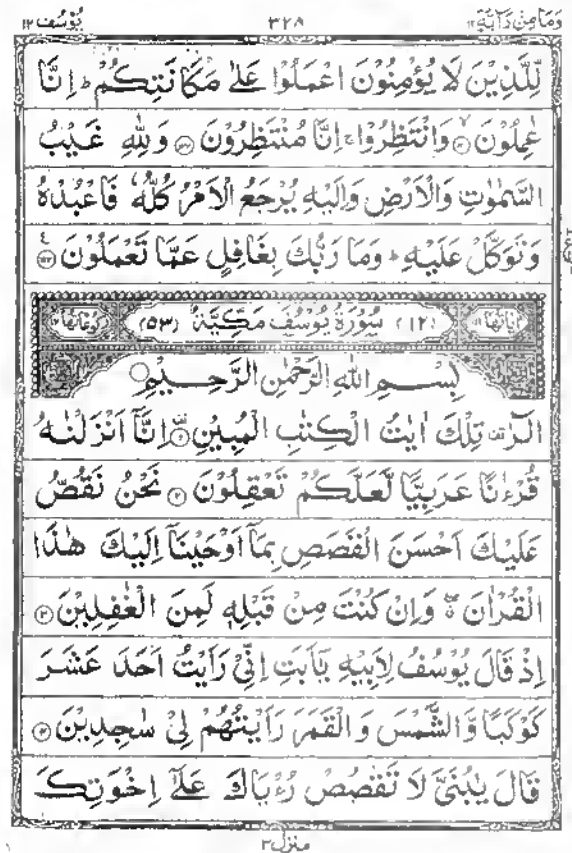 وَمَا مِنْ دَآبَّةٍ ١٢ ٣٢٨ يُوْسُف ١٢
لِّلَّذِيْنَ لَا يُؤْمِنُوْنَ اعْمَلُوْا عَلٰى مَكَانَتِكُمْ ؕ اِنَّا
عٰمِلُوْنَ ۙ وَانْتَظِرُوْا ۚ اِنَّا مُنْتَظِرُوْنَ ۝ وَلِلّٰهِ غَيْبُ
السَّمٰوٰتِ وَالْاَرْضِ وَاِلَيْهِ يُرْجَعُ الْاَمْرُ كُلُّهٗ فَاعْبُدْهُ
وَتَوَكَّلْ عَلَيْهِ ؕ وَمَا رَبُّكَ بِغَافِلٍ عَمَّا تَعْمَلُوْنَ ۝
اٰيَاتُهَا (١٢) سُوْرَةُ يُوْسُفَ مَكِّيَّةٌ (٥٣) رُكُوْعَاتُهَا
بِسْمِ اللهِ الرَّحْمٰنِ الرَّحِيْمِ
الٓرٰ تِلْكَ اٰيٰتُ الْكِتٰبِ الْمُبِيْنِ ۝ اِنَّآ اَنْزَلْنٰهُ
قُرْءٰنًا عَرَبِيًّا لَّعَلَّكُمْ تَعْقِلُوْنَ ۝ نَحْنُ نَقُصُّ
عَلَيْكَ اَحْسَنَ الْقَصَصِ بِمَآ اَوْحَيْنَآ اِلَيْكَ هٰذَا
الْقُرْاٰنَ ۖ وَاِنْ كُنْتَ مِنْ قَبْلِهٖ لَمِنَ الْغٰفِلِيْنَ ۝
اِذْ قَالَ يُوْسُفُ لِاَبِيْهِ يٰٓاَبَتِ اِنِّيْ رَاَيْتُ اَحَدَ عَشَرَ
كَوْكَبًا وَّالشَّمْسَ وَالْقَمَرَ رَاَيْتُهُمْ لِيْ سٰجِدِيْنَ ۝
قَالَ يٰبُنَيَّ لَا تَقْصُصْ رُءْيَاكَ عَلٰٓى اِخْوَتِكَ
منزل ٣